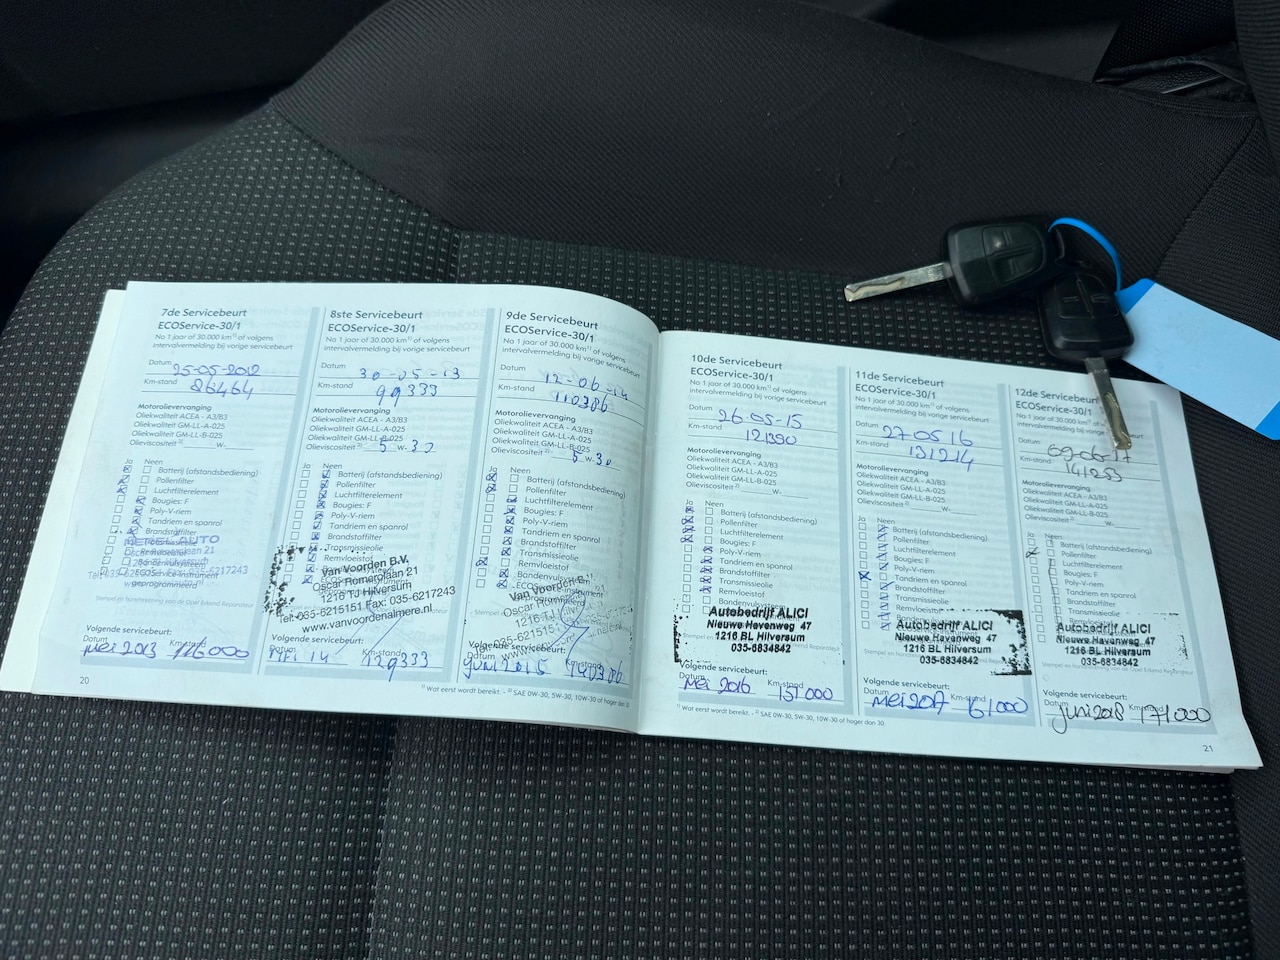 7de Servicebeurt
ECOService-30/1
No 1 jaar of 30.000 km¹⁾ of volgens
intervalvermelding bij vorige servicebeurt
Datum 25-05-2012
Km-stand 86464
Motorolieverversing
Oliekwaliteit ACEA - A3/B3
Oliekwaliteit GM-LL-A-025
Oliekwaliteit GM-LL-B-025
Olieviscositeit ²⁾ W-
Ja Neen
Batterij (afstandsbediening)
Pollenfilter
Luchtfilterelement
Bougies: F
Poly-V-riem
Tandriem en spanrol
Brandstoffilter
Volgende servicebeurt:
Datum Km-stand
mei 2013 116000
20
8ste Servicebeurt
ECOService-30/1
No 1 jaar of 30.000 km¹⁾ of volgens
intervalvermelding bij vorige servicebeurt
Datum 30-05-13
Km-stand 99333
Motorolieverversing
Oliekwaliteit ACEA - A3/B3
Oliekwaliteit GM-LL-A-025
Oliekwaliteit GM-LL-B-025
Olieviscositeit ²⁾ 5 W-30
Ja Neen
Batterij (afstandsbediening)
Pollenfilter
Luchtfilterelement
Bougies: F
Poly-V-riem
Tandriem en spanrol
Brandstoffilter
Transmissieolie
Remvloeistof
van Voorden B.V.
Oscar Romerolaan 21
1216 TJ Hilversum
Tel. 035-6215151 Fax: 035-6217243
www.vanvoordenalmere.nl
Volgende servicebeurt:
Datum Km-stand
mei 14 129333
9de Servicebeurt
ECOService-30/1
No 1 jaar of 30.000 km¹⁾ of volgens
intervalvermelding bij vorige servicebeurt
Datum 12-06-14
Km-stand 110386
Motorolieverversing
Oliekwaliteit ACEA - A3/B3
Oliekwaliteit GM-LL-A-025
Oliekwaliteit GM-LL-B-025
Olieviscositeit ²⁾ 5 W-30
Ja Neen
Batterij (afstandsbediening)
Pollenfilter
Luchtfilterelement
Bougies: F
Poly-V-riem
Tandriem en spanrol
Brandstoffilter
Transmissieolie
Remvloeistof
Volgende servicebeurt:
Datum Km-stand
juni 2015 140386
¹⁾ Wat eerst wordt bereikt. - ²⁾ SAE 0W-30, 5W-30, 10W-30 of hoger dan 30
10de Servicebeurt
ECOService-30/1
No 1 jaar of 30.000 km¹⁾ of volgens
intervalvermelding bij vorige servicebeurt
Datum 26-05-15
Km-stand 121390
Motorolieverversing
Oliekwaliteit ACEA - A3/B3
Oliekwaliteit GM-LL-A-025
Oliekwaliteit GM-LL-B-025
Olieviscositeit ²⁾ W-
Ja Neen
Batterij (afstandsbediening)
Pollenfilter
Luchtfilterelement
Bougies: F
Poly-V-riem
Tandriem en spanrol
Brandstoffilter
Transmissieolie
Remvloeistof
Autobedrijf ALICI
Nieuwe Havenweg 47
1216 BL Hilversum
035-6834842
Volgende servicebeurt:
Datum Km-stand
mei 2016 151000
¹⁾ Wat eerst wordt bereikt. - ²⁾ SAE 0W-30, 5W-30, 10W-30 of hoger dan 30
11de Servicebeurt
ECOService-30/1
No 1 jaar of 30.000 km¹⁾ of volgens
intervalvermelding bij vorige servicebeurt
Datum 270516
Km-stand 131214
Motorolieverversing
Oliekwaliteit ACEA - A3/B3
Oliekwaliteit GM-LL-A-025
Oliekwaliteit GM-LL-B-025
Olieviscositeit ²⁾ W-
Ja Neen
Batterij (afstandsbediening)
Pollenfilter
Luchtfilterelement
Bougies: F
Poly-V-riem
Tandriem en spanrol
Brandstoffilter
Transmissieolie
Remvloeistof
Autobedrijf ALICI
Nieuwe Havenweg 47
1216 BL Hilversum
035-6834842
Volgende servicebeurt:
Datum Km-stand
mei 2017 161000
12de Servicebeurt
ECOService-30/1
No 1 jaar of 30.000
intervalvermelding bij vorige servicebeurt
Datum 09-06-17
Km-stand 141253
Motorolieverversing
Oliekwaliteit ACEA - A3/B3
Oliekwaliteit GM-LL-A-025
Oliekwaliteit GM-LL-B-025
Olieviscositeit ²⁾ W-
Ja Neen
Batterij (afstandsbediening)
Pollenfilter
Luchtfilterelement
Bougies: F
Poly-V-riem
Tandriem en spanrol
Brandstoffilter
Transmissieolie
Autobedrijf ALICI
Nieuwe Havenweg 47
1216 BL Hilversum
035-6834842
Volgende servicebeurt:
Datum Km-stand
juni 2018 171000
21